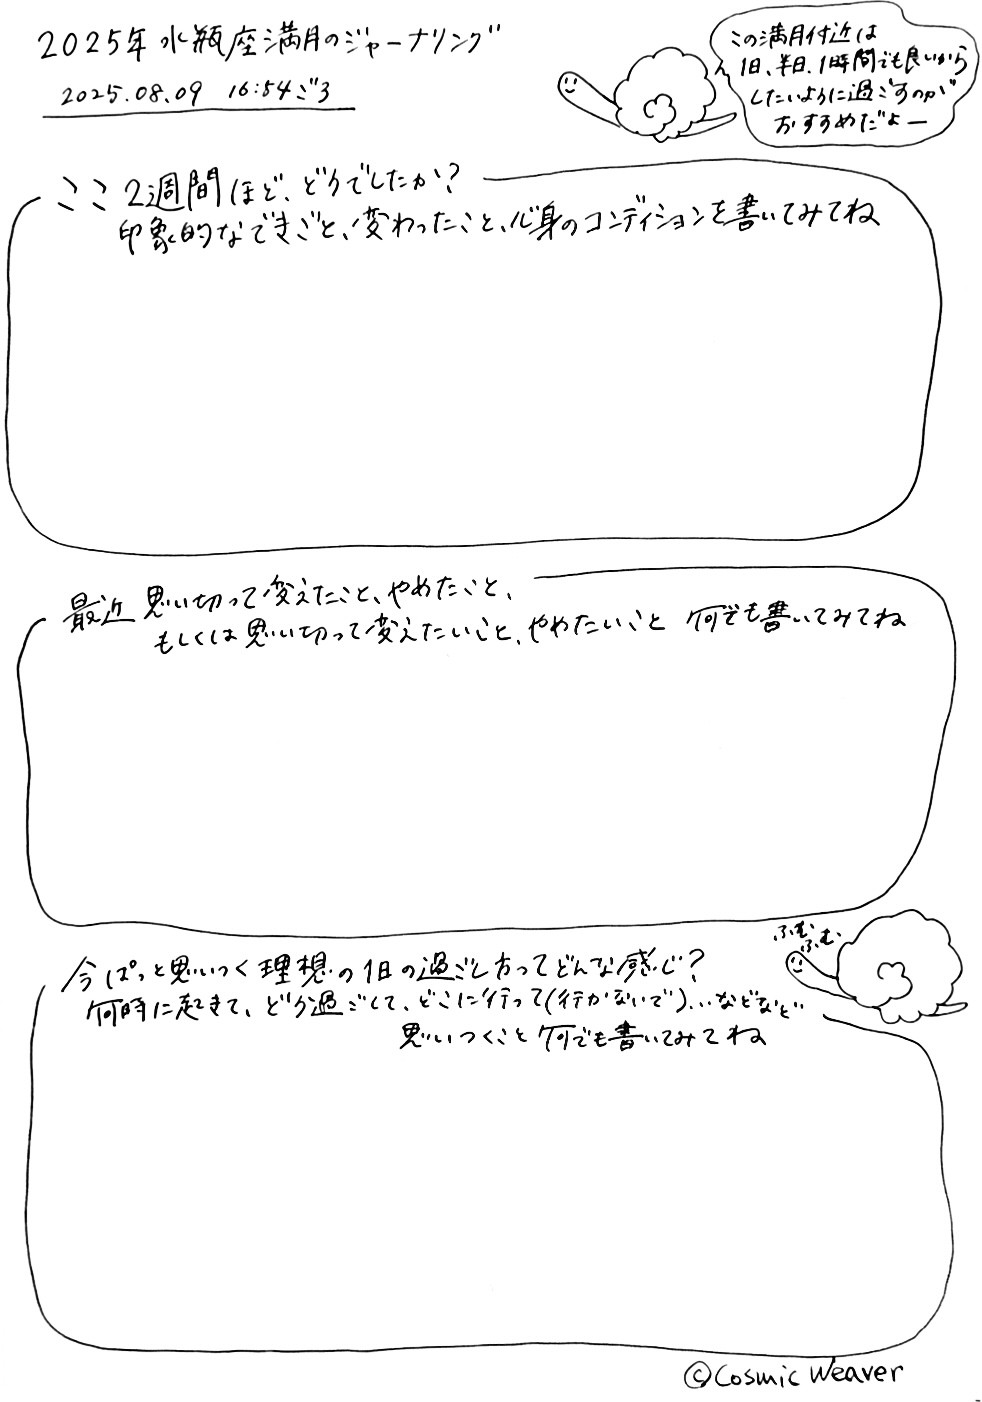 2025年 水瓶座満月のジャーナリング
2025.08.09 16:54ごろ
この満月付近は
1日、半日、1時間でも良いから
したいように過ごすのが
おすすめだよー
ここ2週間ほど、どうでしたか?
印象的なできごと、変わったこと、心身のコンディションを書いてみてね
最近 思い切って変えたこと、やめたこと、
もしくは思い切って変えたいこと、やめたいこと 何でも書いてみてね
ふむ
ふむ
今ぱっと思いつく理想の1日の過ごし方ってどんな感じ?
何時に起きて、どう過ごして、どこに行って(行かないで)...などなど
思いつくこと何でも書いてみてね
©Cosmic Weaver